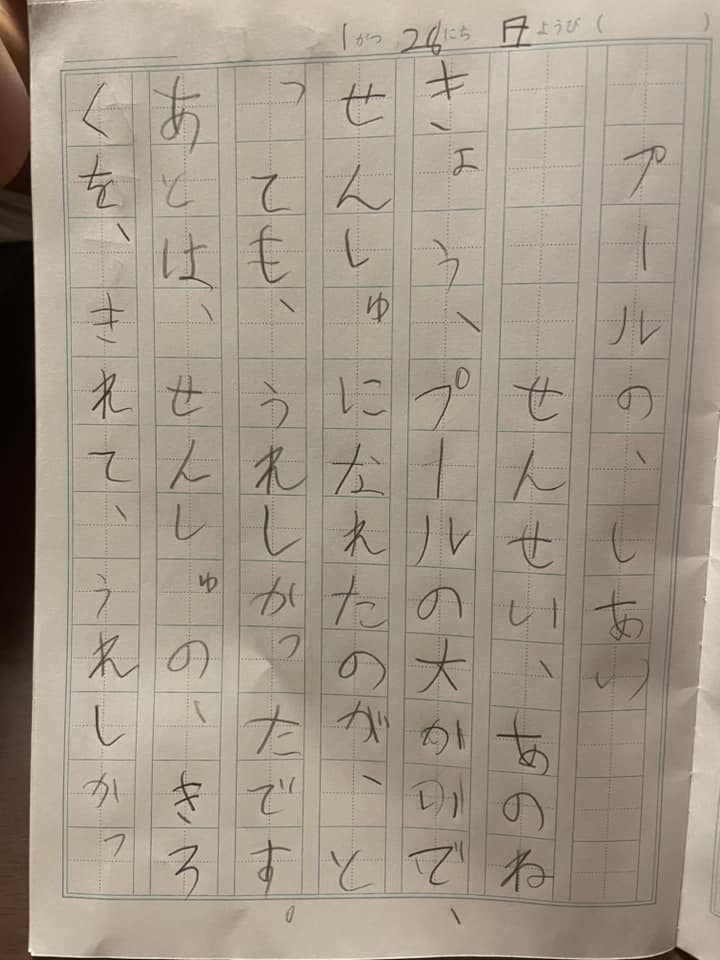 1がつ 26にち 日ようび( )
プールの、しあい
せんせい、あのね
きょう、プールの大かいで、
せんしゅになれたのが、と
っても、うれしかったです。
あとは、せんしゅの、きろ
くを、きれて、うれしかっ